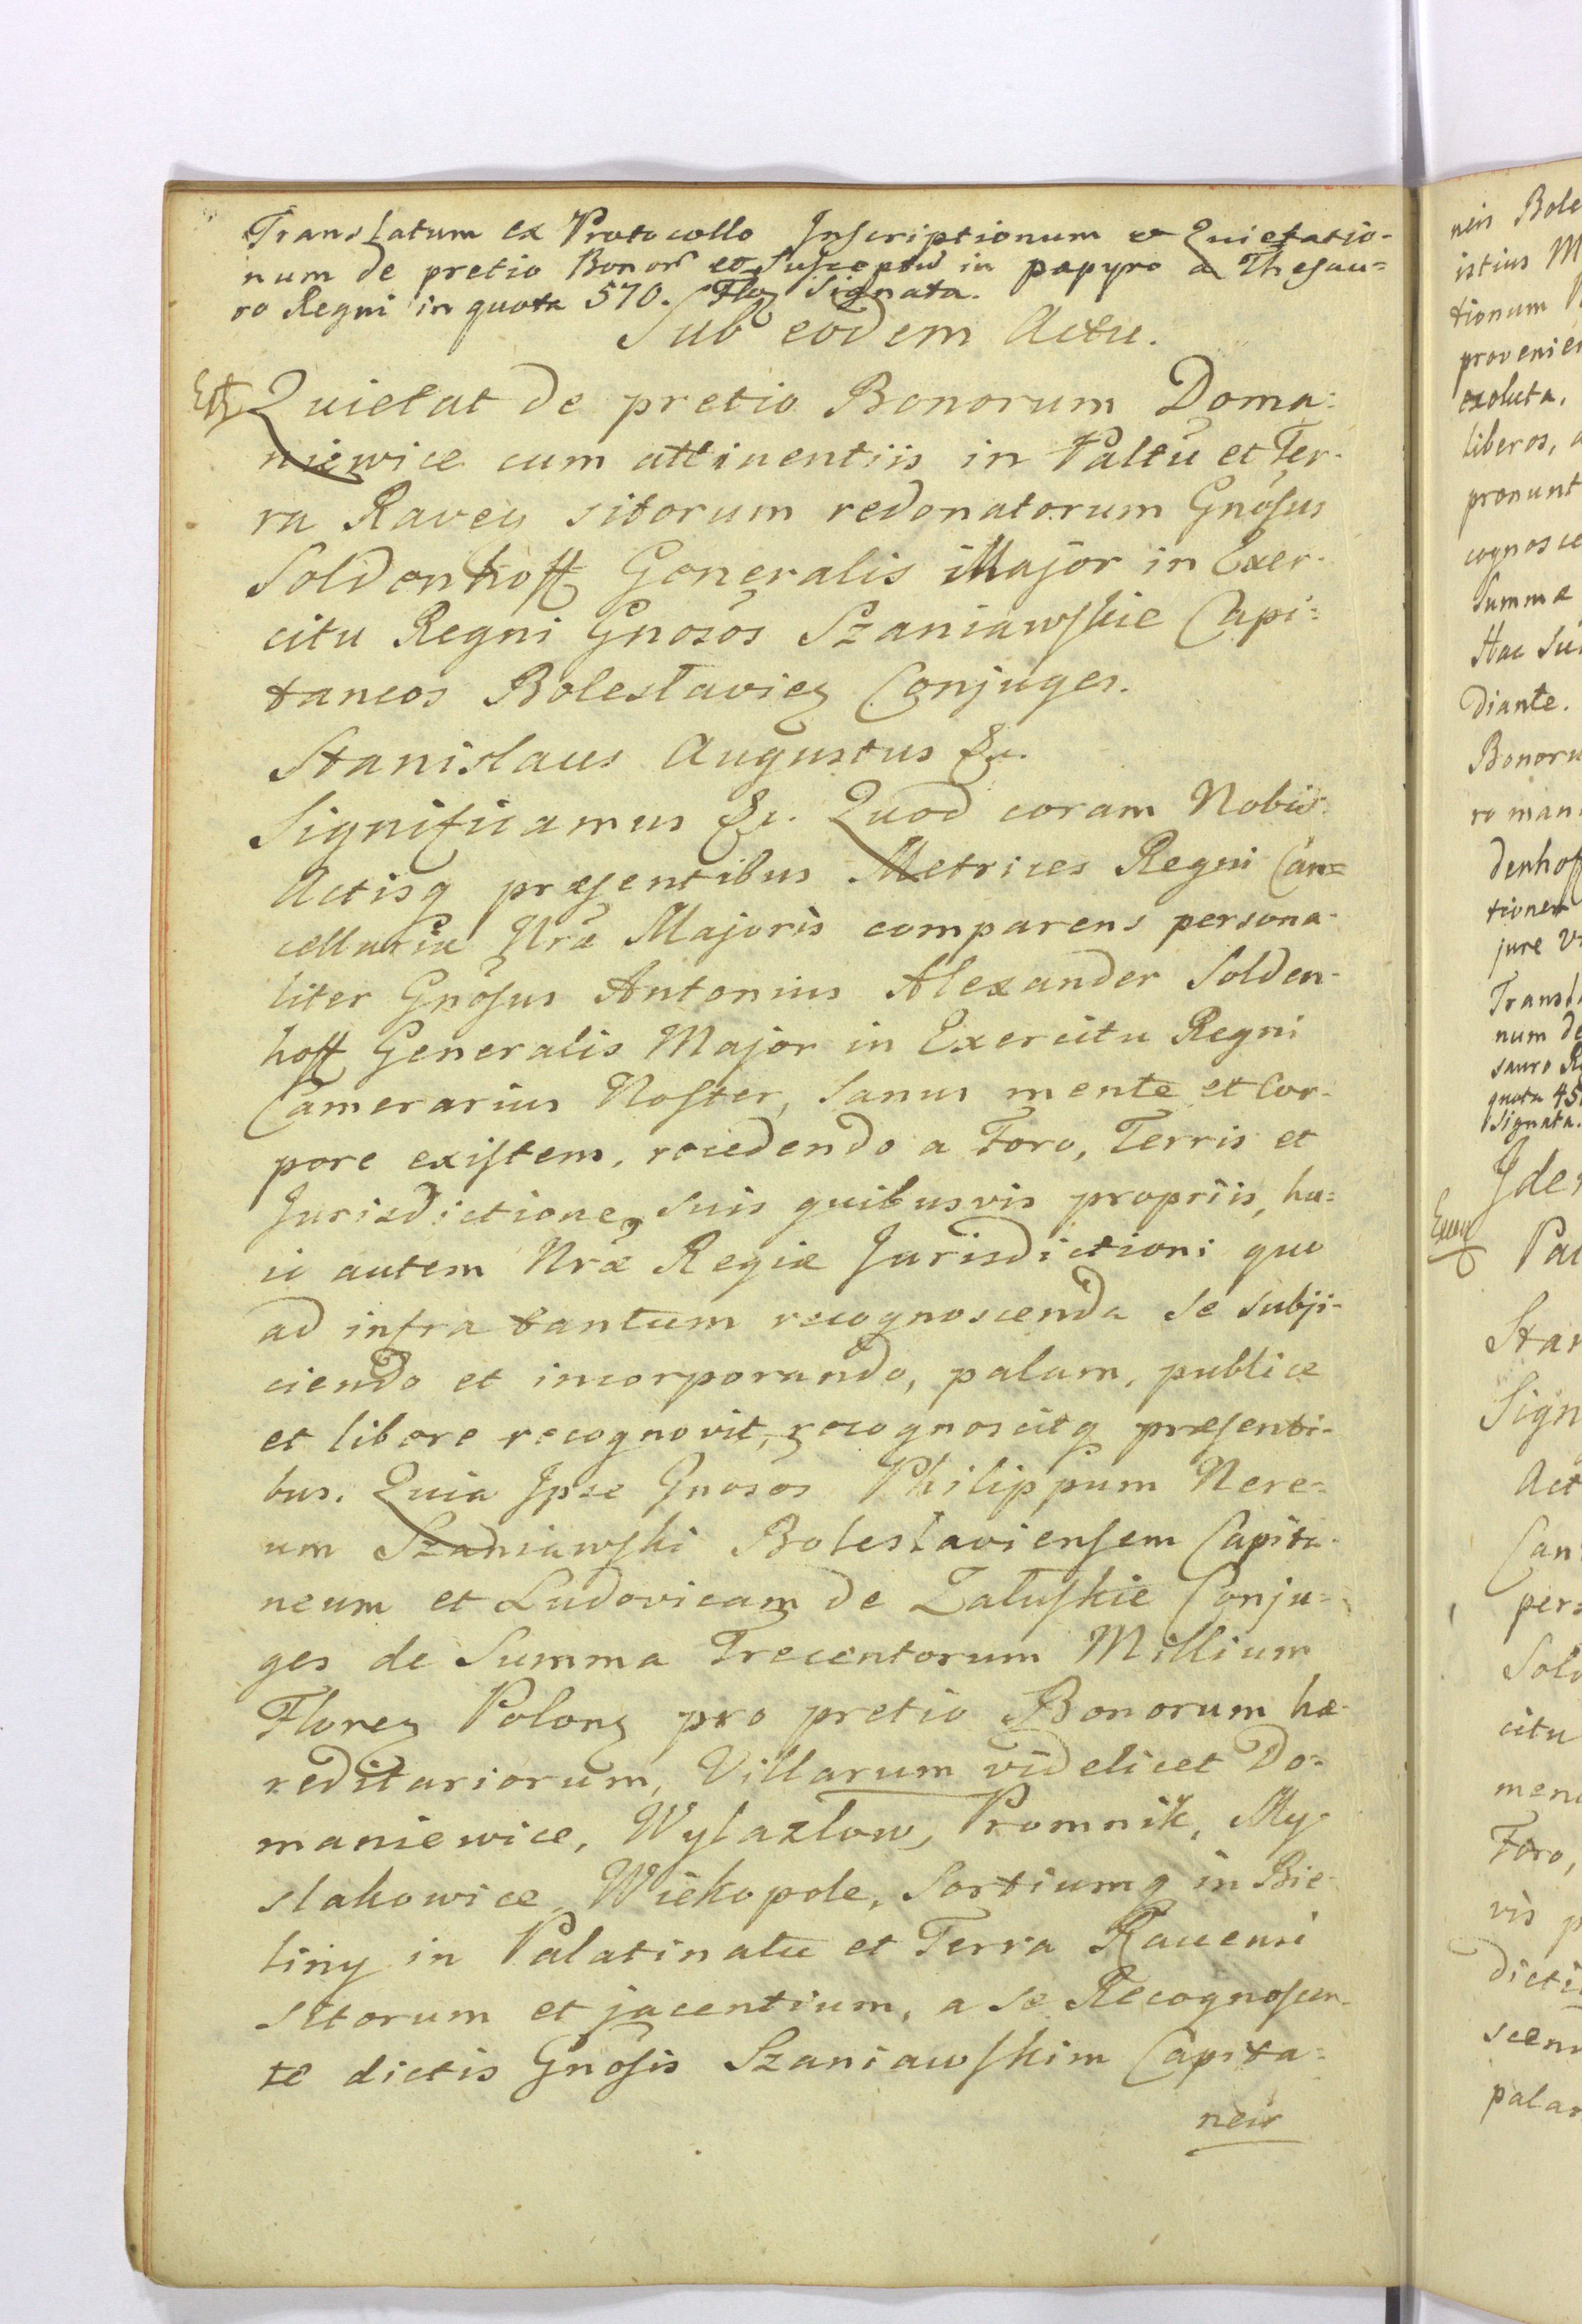 Translatum ex Protocollo Inscriptionum et Quietatio-
num de pretio Bonor eo Susceptu in papyro a Thesau=
ro Regni in quota 570. Flo Signata.
Sub eodem Actu.
Ext Quietat de pretio Bonorum Doma=
niewice cum attinentiis in Paltu et Ter-
ra Raven sitorum redonatorum Gnosus
Soldenhoff Generalis Major in Exer-
citu Regni Gnosos Szaniawskie Capi=
taneos Boleslavien Conjuges.
Stanislaus Augustus &c.
Significamus &c. Quod coram Nobis
Actisq præsentibus Metrices Regni Can=
cellariæ Nræ Majoris comparens persona-
liter Gnosus Antonius Alexander Solden-
hoff Generalis Major in Exercitu Regni
Camerarius Noster, Sanus mente et Cor-
pore existens, recedendo a Foro, Terris et
Jurisdictione, suis quibusvis propriis, hu=
ic autem Nræ Regiæ Jurisdictioni quo
ad infra tantum recognoscenda se subji-
ciendo et incorporando, palam, publice
et libere recognovit, recognoscitq præsenti-
bus. Quia Ipse Gnosos Philippum Nere=
um Szaniawski Boleslaviensem Capita-
neum et Ludovicam de Załuskie Conju=
ges de Summa Trecentorum Millium
Floren Polon pro pretio Bonorum hæ-
reditariorum, Villarum videlicet Do=
maniewice, Wylazłow, Promnik, My-
slakowice, Wiekopole, Sortiumq in Bie-
liny in Palatinatu et Terra Ravensi
sitorum et jacentium, a se Recognoscen-
te dictis Gnosis Szaniawskim Capita=
neis
neis Bole
istius M
tionum
provenien
exoluta,
liberos, a
pronunt
cognosce
Summa
Hac
diante.
Bonoru
ro man
denhoff
tiones
jure
Transl
num de
sauro R
quota 45
Signata.
Iden
Pal
Stan
Sign
Act
Can
pers
Sold
citu
men
Foro,
vis p
dicti
scen
palam